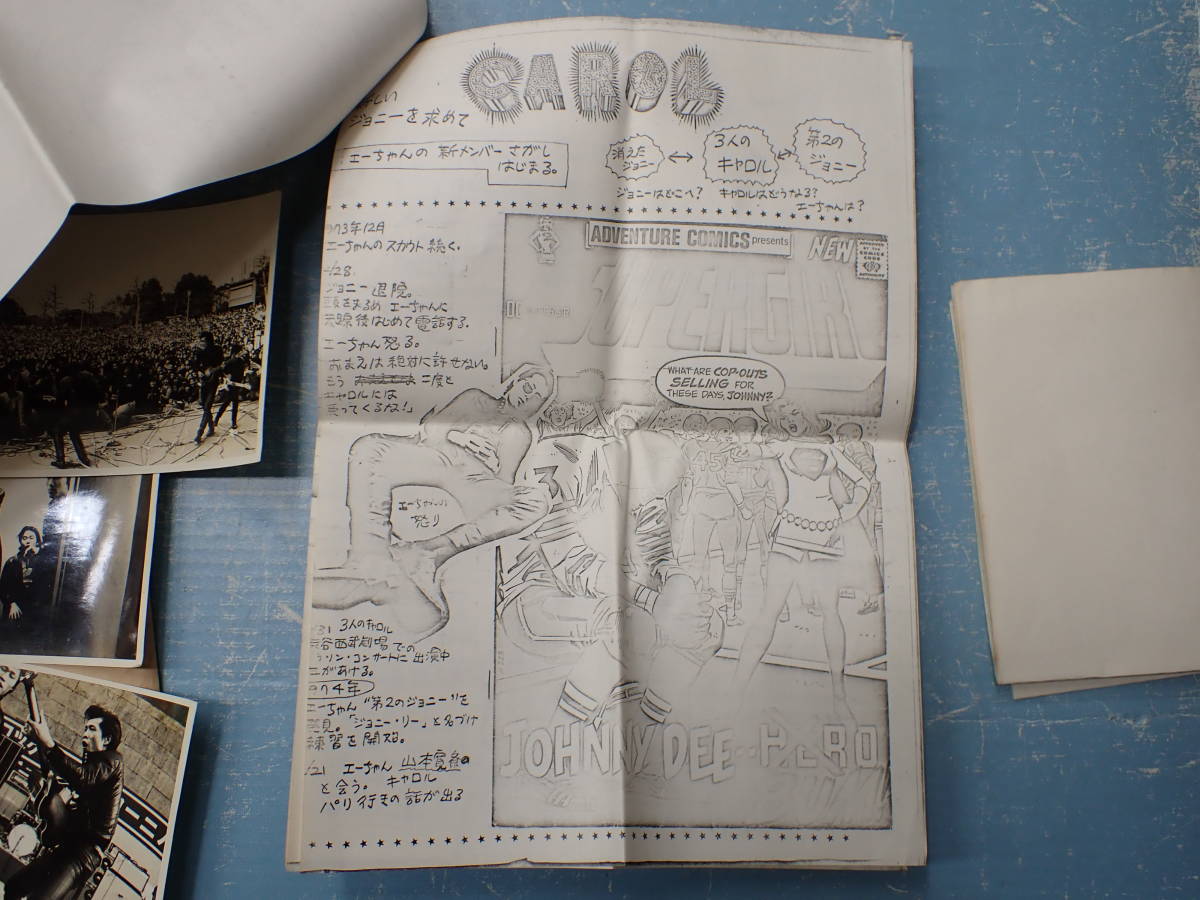 CAROL
しい
ジョニーを求めて
エーちゃんの 新メンバーさがし
はじまる。
消えた
ジョニー
3人の
キャロル
第2の
ジョニー
ジョニーはどこへ?
キャロルはどうなる?
エーちゃんは?
73年12月
エーちゃんのスカウト続く。
28
ジョニー退院。
をまるめ エーちゃんに
後はじめて電話する。
エーちゃん怒る。
おまえは絶対に許せない。
もう 二度と
キャロルには
ってくるな!」
ADVENTURE COMICS presents
NEW
APPROVED
BY THE
COMICS
CODE
AUTHORITY
DC
SUPERGIRL
WHAT ARE COP-OUTS
SELLING FOR
THESE DAYS, JOHNNY?
3
45
エーちゃんの
怒り
31 3人のキャロル
谷西武劇場での
ソン・コンサートに出演中
があける。
74年
エーちゃん "第2のジョニー"を
見。「ジョニー・リー」と名づけ
練習を開始。
21 エーちゃん 山本寛斎
と会う。 キャロル
パリ行きの話が出る
JOHNNY DEE--HERO